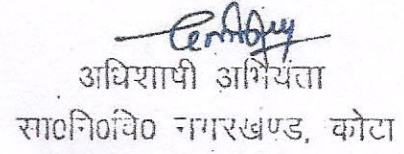 अधिशाषी अभियंता
सा०नि०वि० नगरखण्ड, कोटा